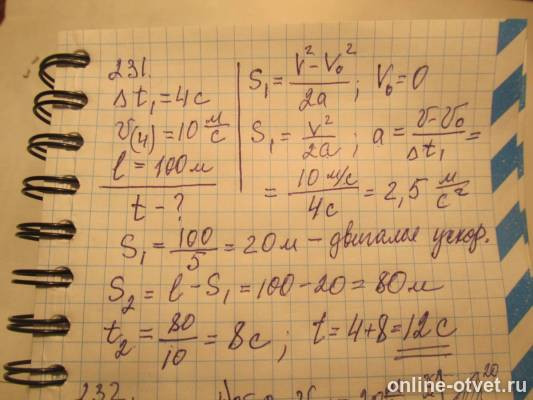 231.
Δt₁ = 4c
v(4) = 10 м/с
l = 100 м
t - ?
S₁ = (V² - V₀²)/2a ; V₀ = 0
S₁ = V²/2a ; a = (v - v₀)/Δt₁ =
= 10 м/с / 4c = 2,5 м/с²
S₁ = 100/5 = 20 м – двигалось ускор.
S₂ = l - S₁ = 100 - 20 = 80 м
t₂ = 80/10 = 8c ; t = 4 + 8 = 12 c
232.
online-otvet.ru